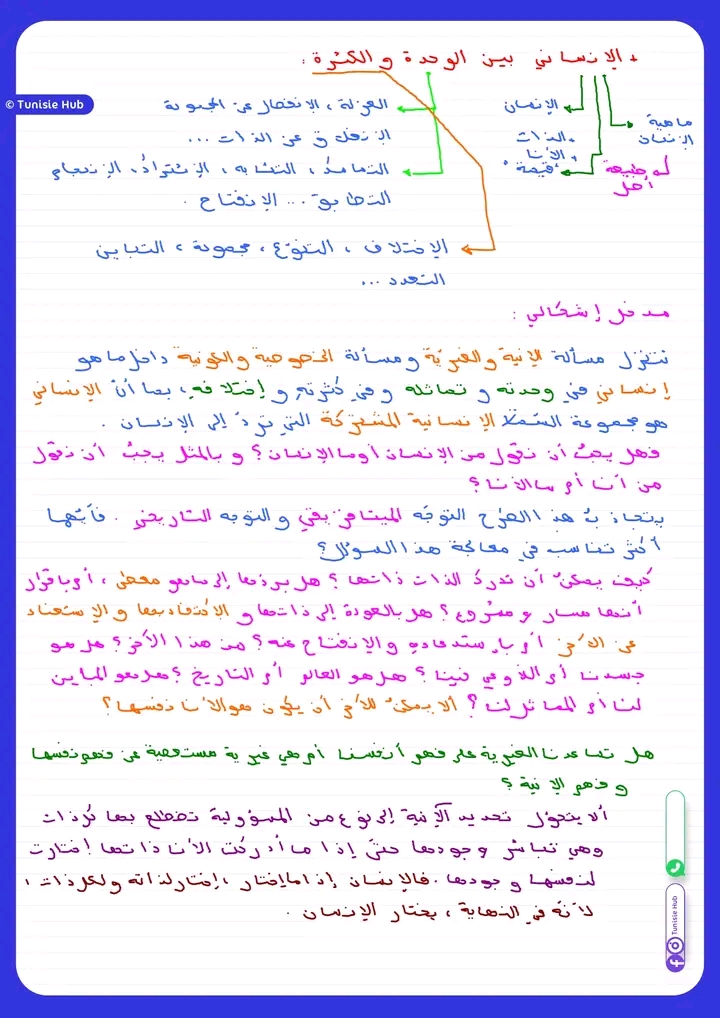 + الإنساني بين الوحدة والكثرة :
© Tunisie Hub
ماهية الإنسان
له طبيعة
أصل
الإنسان
+ الذات
+ الأنا
"قيمة"
العزلة، الإنفصال عن المجموعة
الإنغلاق عن الذات ...
التماسك، التشابه، الإشتراك، الإنسجام
التطابق ... الإنفتاح .
الإختلاف، التنوّع، مجموعة، التباين
التعدد ...
مدخل إشكالي :
تتنزل مسألة الإنية والغيريّة ومسألة الخصوصية والكونية داخل ما هو
إنساني في وحدته و تماثله وفي كثرته و إختلافه، بما أنّ الإنساني
هو مجموعة السّمات الإنسانية المشتركة التي تردّ إلى الإنسان .
فهل يجبُ أن نقول من الإنسان أو ما الإنسان؟ و بالمثل يجبُ أن نقول
من أنا أم ما الأنا؟
يتجاذبُ هذا الطرح التوجّه الميتافيزيقي والتوجه التاريخي . فأيّها
أكثر تناسب في معالجة هذا السؤال؟
كيف يمكنُ أن تدركَ الذات ذاتها؟ هل بردّها إلى ما هو معطى، أو بإقرار
أنها مسار و مشروع؟ هل بالعودة إلى ذاتها و الإكتفاء بها و الإستغناء
عن الآخر أو بإستدعاءه والإنفتاح عنه؟ من هذا الآخر؟ هل هو
جسدنا أم اللاوعي فينا؟ هل هو العالم أم التاريخ؟ هل هو المباين
لنا أم المماثل لنا؟ ألا يمكنُ للآخر أن يكون هو الأنا نفسها؟
هل تساعدنا الغيرية على فهم أنفسنا أم هي غيرية مستعصية عن فهم نفسها
و فهم الإنية؟
ألا يتحوّل تحديد الآنية إلى نوع من المسؤولية تضطلع بها كل ذات
وهي تباشر وجودها حتّى إذا ما أدركت الأنا ذاتها إختارت
لنفسها وجودها. فالإنسان إذا ما إختار، إختار لذاته ولكل ذات،
لأنّه في النهاية، يختار الإنسان .
Tunisie Hub